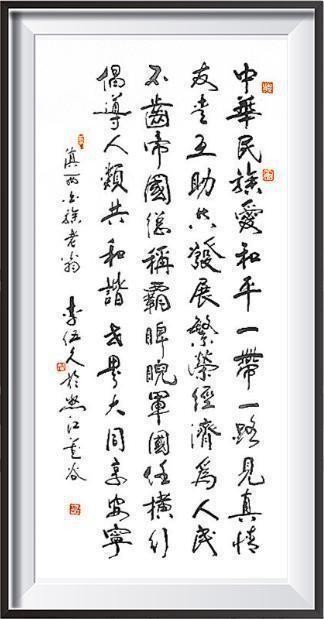 中華民族愛和平一帶一路見真情
友互助共發展繁榮經濟為人民
不齒帝國總稱霸睥睨軍國任橫行
倡導人類共和諧世界大同享安寧
滇西白族老翁 李伍久於怒江谷